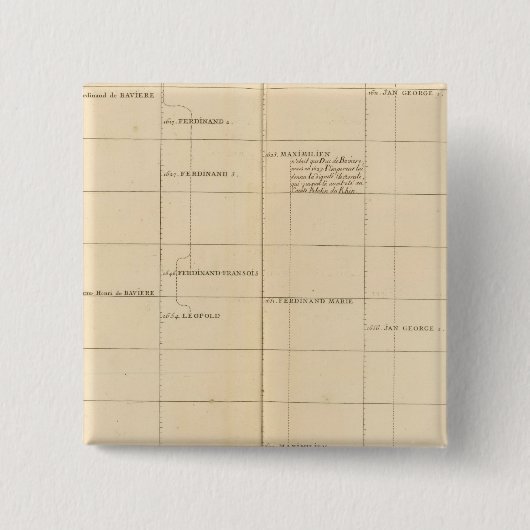 dinand de BAVIERE
1611. JAN GEORGE 1.
1617. FERDINAND 2.
1623. MAXIMILIEN
n'etoit que Duc de Baviere,
mais en 1623 l'Empereur lui
donna la dignité électorale,
qui jusque là avoit été au
Comte Palatin du Rhin.
1627. FERDINAND 3.
1646. FERDINAND FRANSOIS
Henri de BAVIERE
1651. FERDINAND MARIE
1654. LEOPOLD
1656. JAN GEORGE 2.
MAXIMILIEN